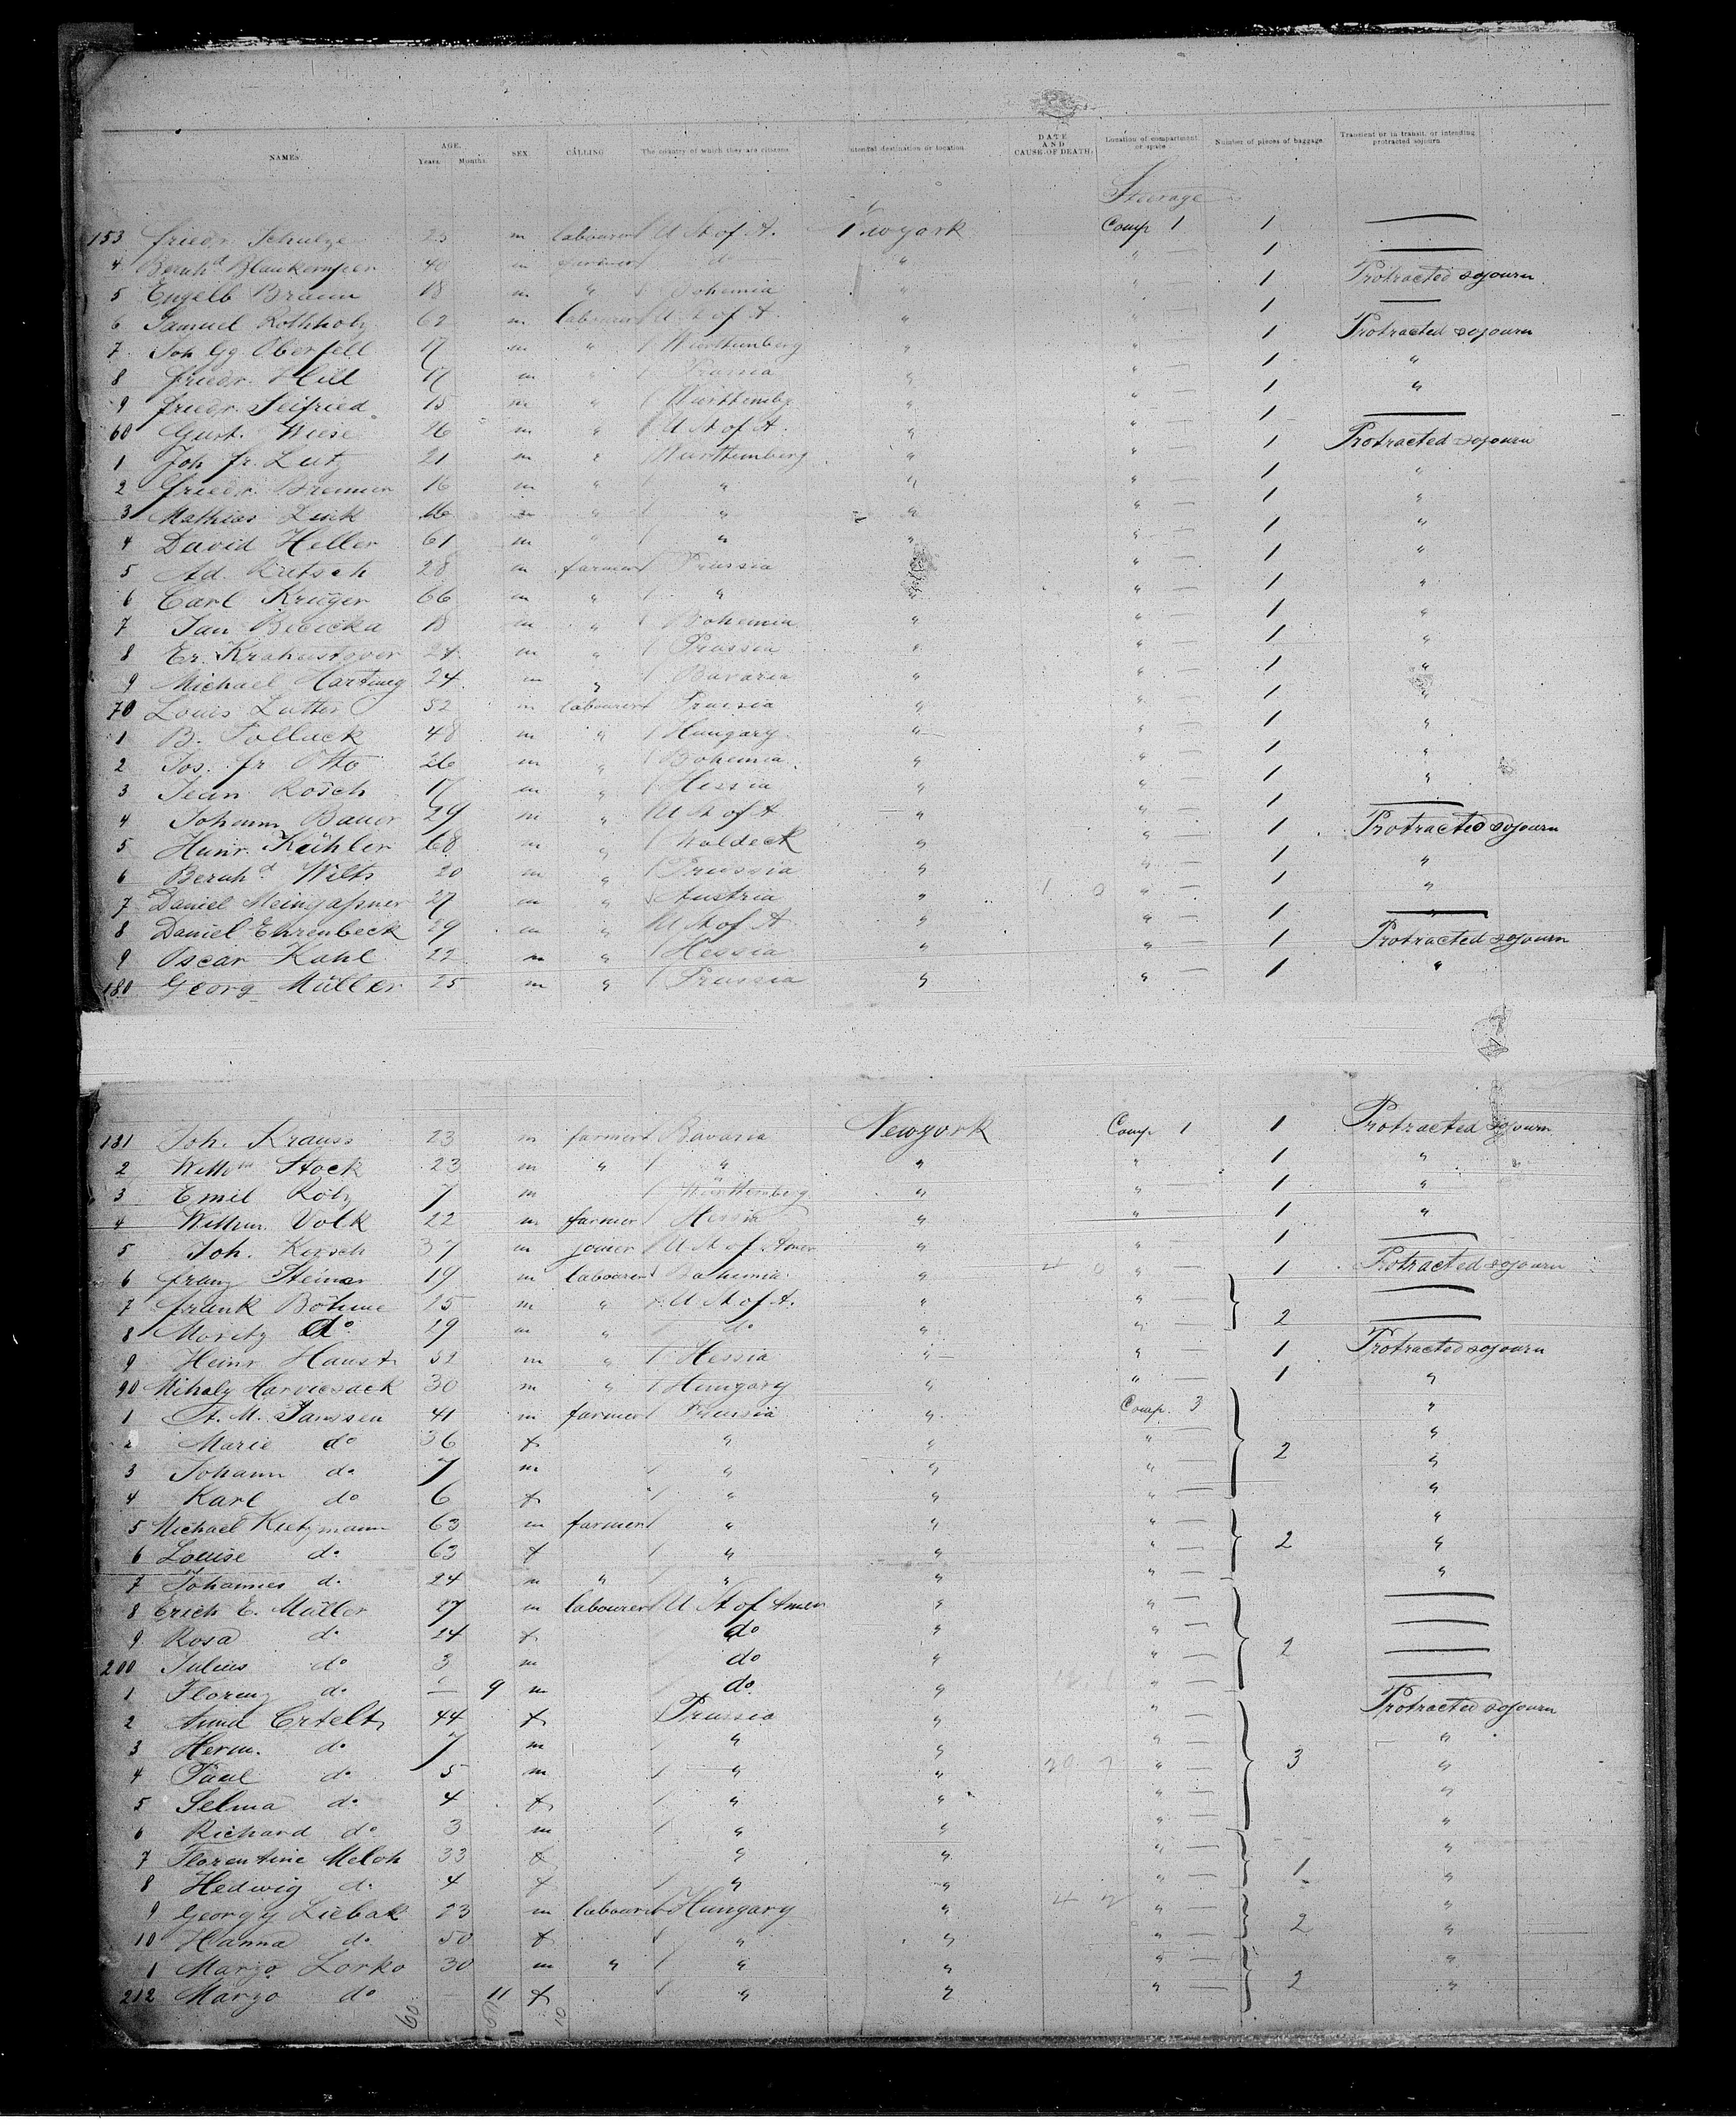 NAMES. AGE. Years. Months. SEX. CALLING The country of which they are citizens. Intended destination or location DATE AND CAUSE OF DEATH. Location of compartment or space Number of pieces of baggage. Transient or in transit, or intending protracted sojourn
Steerage
153 Friedr. Schulze 25 m labourer U St of A. Newyork Comp 1 1 —
4 Bernhd Blankemper 40 m farmer do " " — 1 —
5 Engelb Braun 18 m " Bohemia " " — 1 Protracted sojourn
6 Samuel Rothholz 62 m labourer U St of A. " " 1 —
7 Joh Gg. Oberfell 17 m " Württemberg " " — 1 Protracted sojourn
8 Friedr. Hill 17 m " Prussia " " — 1 "
9 Friedr. Seifried 15 m " Württembg " " 1 "
60 Gust. Wiese 26 m " U St of A. " " — 1 —
1 Joh fr. Lutz 21 m " Württemberg " " — 1 Protracted sojourn
2 Friedr. 16 m " " " " — 1 "
3 Mathias Link 16 m " " " " — 1 "
4 David Heller 61 m " " " " — 1 "
5 Ad. Rutsch 28 m farmer Prussia " " — 1 "
6 Carl Krüger 66 m " " " " — 1 "
7 Jan 18 m " Bohemia " " — 1 "
8 Er. 24 m " Prussia " " — 1 "
9 Michael Hartung 24 m " Bavaria " " — 1 "
70 Louis Lutter 52 m labourer Prussia " " — 1 "
1 B. Polluck 48 m " Hungary " " — 1 "
2 Jos. fr Otto 26 m " Bohemia " " — 1 "
3 Jean Rosch 17 m " Hessia " " — 1 "
4 Johann Bauer 29 m " U St of A " " — 1 —
5 Heinr. Köhler 68 m " Waldeck " " — 1 Protracted sojourn
6 Bernhd Wilts 20 m " Prussia " " — 1 "
7 Daniel Meingassner 27 m " Austria " 1 0 " — 1 "
8 Daniel Ehrenbeck 29 m " U St of A " " — 1 —
9 Oscar Kahl 22 m " Hessia " " — 1 Protracted sojourn
180 Georg Müller 25 m " Prussia " " — 1 "
181 Joh. Krauss 23 m farmer Bavaria Newyork Comp 1 1 Protracted sojourn
2 Wilhm Stock 23 m " " " " 1 "
3 Emil Rölz 7 m Württemberg " " — 1 "
4 Wilhm. Volk 22 m farmer Hessia " " — 1 "
5 Joh. Kersch 37 m joiner U St of Amer " " — 1 —
6 Franz Steiner 19 m labourer Bohemia " 4 0 " — 1 Protracted sojourn
7 Frank Böhme 25 m " U St of A. " " — —
8 Moritz do 29 m " do " " — 2 —
9 Heinr Haust 52 m " Hessia " " — 1 Protracted sojourn
90 Mihaly Harvicsack 30 m " Hungary " " — 1 "
1 St. M. Janssen 41 m farmer Prussia " Comp. 3 "
2 Marie do 36 f " " " — 2 "
3 Johann do 7 m " " " — "
4 Karl do 6 f " " " — "
5 Michael Kietzmann 63 m farmer " " " — "
6 Louise do 63 f " " " — 2 "
7 Johannes do 24 m " " " " — "
8 Erich E. Müller 27 m labourer U St of Amer " " — —
9 Rosa do 24 f do " " — —
200 Julius do 3 m do " " — 2 —
1 Florenz do — 9 m do " " — —
2 Anna Ertelt 44 f Prussia " " — Protracted sojourn
3 Herm. do 7 m " " " — "
4 Paul do 5 m " " " — 3 "
5 Selma do 4 f " " " — "
6 Richard do 3 m " " " — "
7 Florentine Melch 33 f " " " — "
8 Hedwig do 4 f " " " — 1 "
9 Georgy Liebak 23 m labourer Hungary " " — "
10 Hanna do 50 f " " " — 2 "
1 Margo Lorko 30 m " " " " — "
212 Margo do — 11 f " " " — 2 "